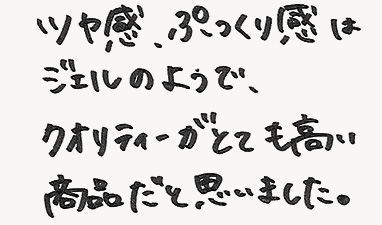 ツヤ感、ぷっくり感は
ジェルのようで、
クオリティーがとても高い
商品だと思いました。